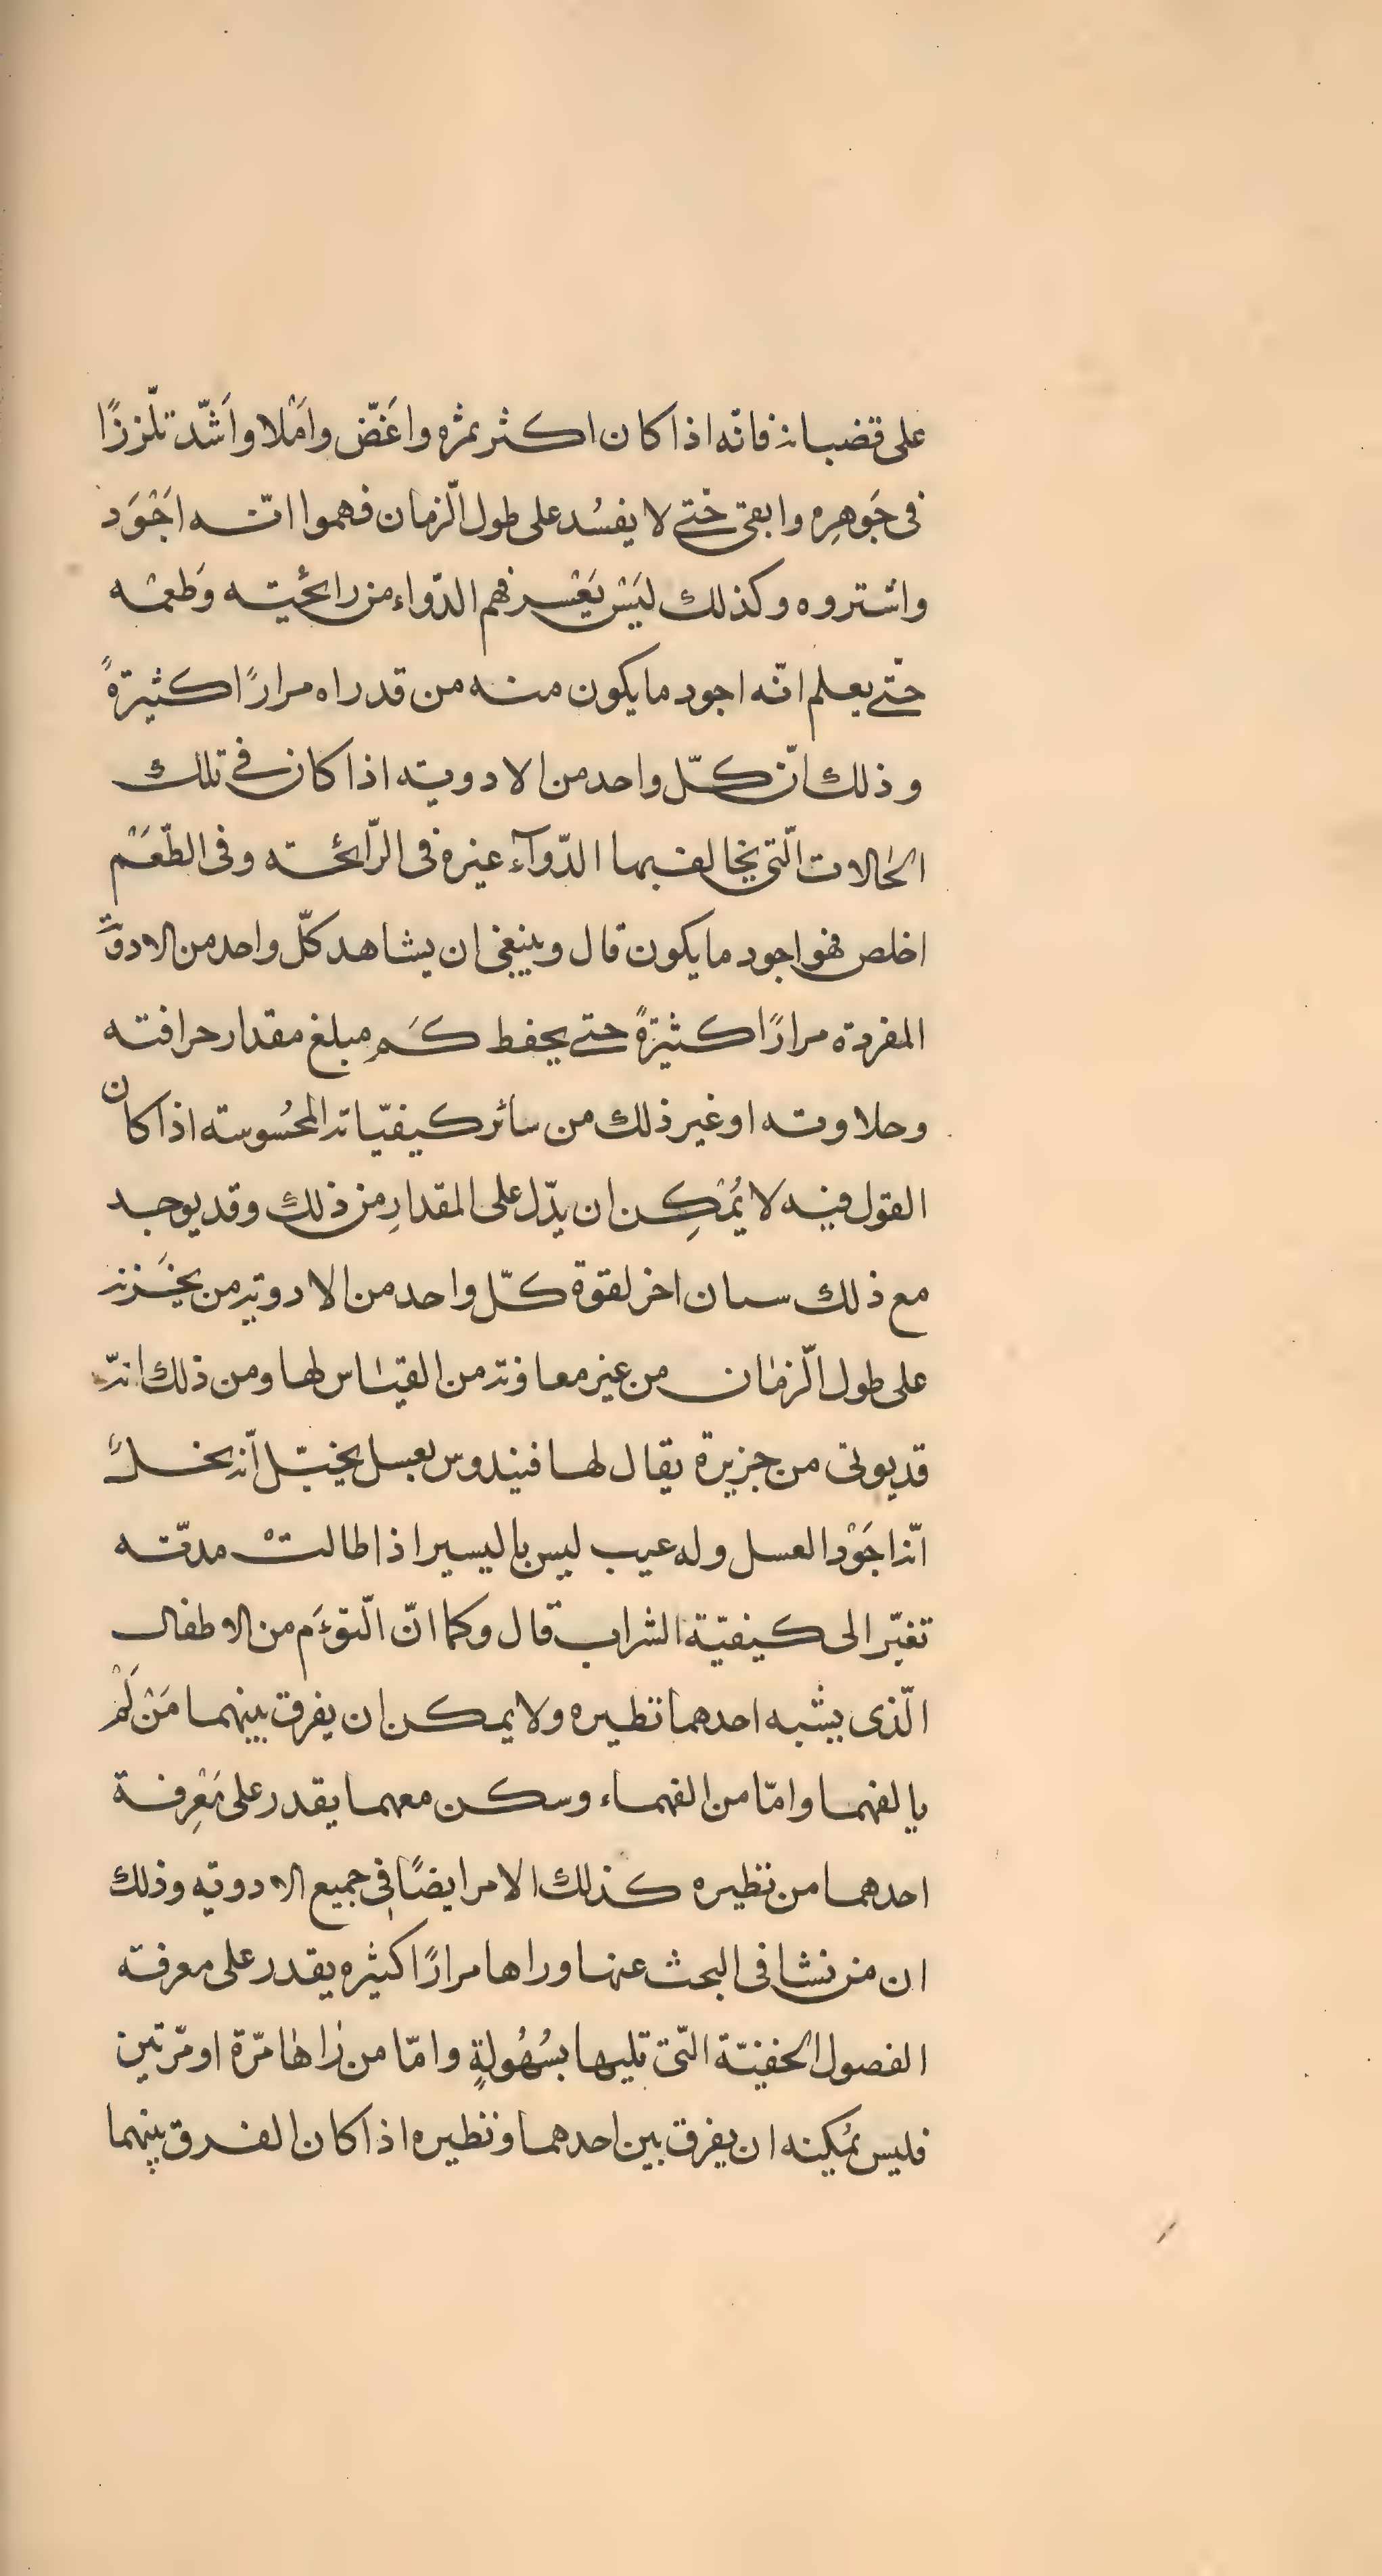 على قضبانه فانّه اذا كان اكثر ثمره واغضّ واملا واشدّ تلززًا
فى جَوهرِه وابقى حتّى لا يفسُد على طول الزّمان فهموا انّه اجْوَد
واشتروه وكذلك ليَسْ يَعْسر فهم الدّواء من رائحيته وَطعمْه
حتّى يعلم انّه اجود ما يكون منه من قدراه مرارًا كثيرةً
وذلك انّ كلّ واحد من الادويته اذا كان فى تلك
الحالات الّتى يخالف بها الدّوآء غيره فى الرّائحته وفى الطّعَمْ
اخلص فهو اجود ما يكون قال وينبغى ان يشاهد كلّ واحد من الادويَّة
المفردة مرارًا كثيرةً حتى يحفظ كَم مبلغ مقدار حرافته
وحلاوته او غير ذلك من سائر كيفيّاته المحُسوسته اذا كان
القول فيه لا يُمْكِن ان يدّل على المقدارِ من ذلك وقد يوجد
مع ذلك سان اخر لقوة كلّ واحد من الادوته من يخَزنه
على طول الزّمٰان من غير معاونة من القيٰاس لها ومن ذلك انّه
قد يوتى من جزيرة يقال لها فيندوس بعسل يخيّل انّه نحلٌ
انّه اجَوْد العسل وله عيب ليس باليسير اذا طالتْ مدّته
تغيّر الى كيفيّة الشراب قال وكما انّ التّوءَم من الاطفال
الّذى يشبه احدهما نظيره ولا يمكن ان يفرق بينهما مَنْ لَمْ
يالفهما وامّا من الفهماء وسكن معهما يقدر على مَعْرِفة
احدهما من نظيره كذلك الامر ايضًا فى جميع الادويه وذلك
ان من نشا فى البحث عنها وراها مرارًا كثيره يقدر على معرفته
الفصول الخفيّة التّى تليها بسُهُولةٍ وامّا من رٰاهٰا مرّة او مرّتين
فليس يُمكينه ان يفرق بين احدهما ونظيره اذا كان الفرق بينهما